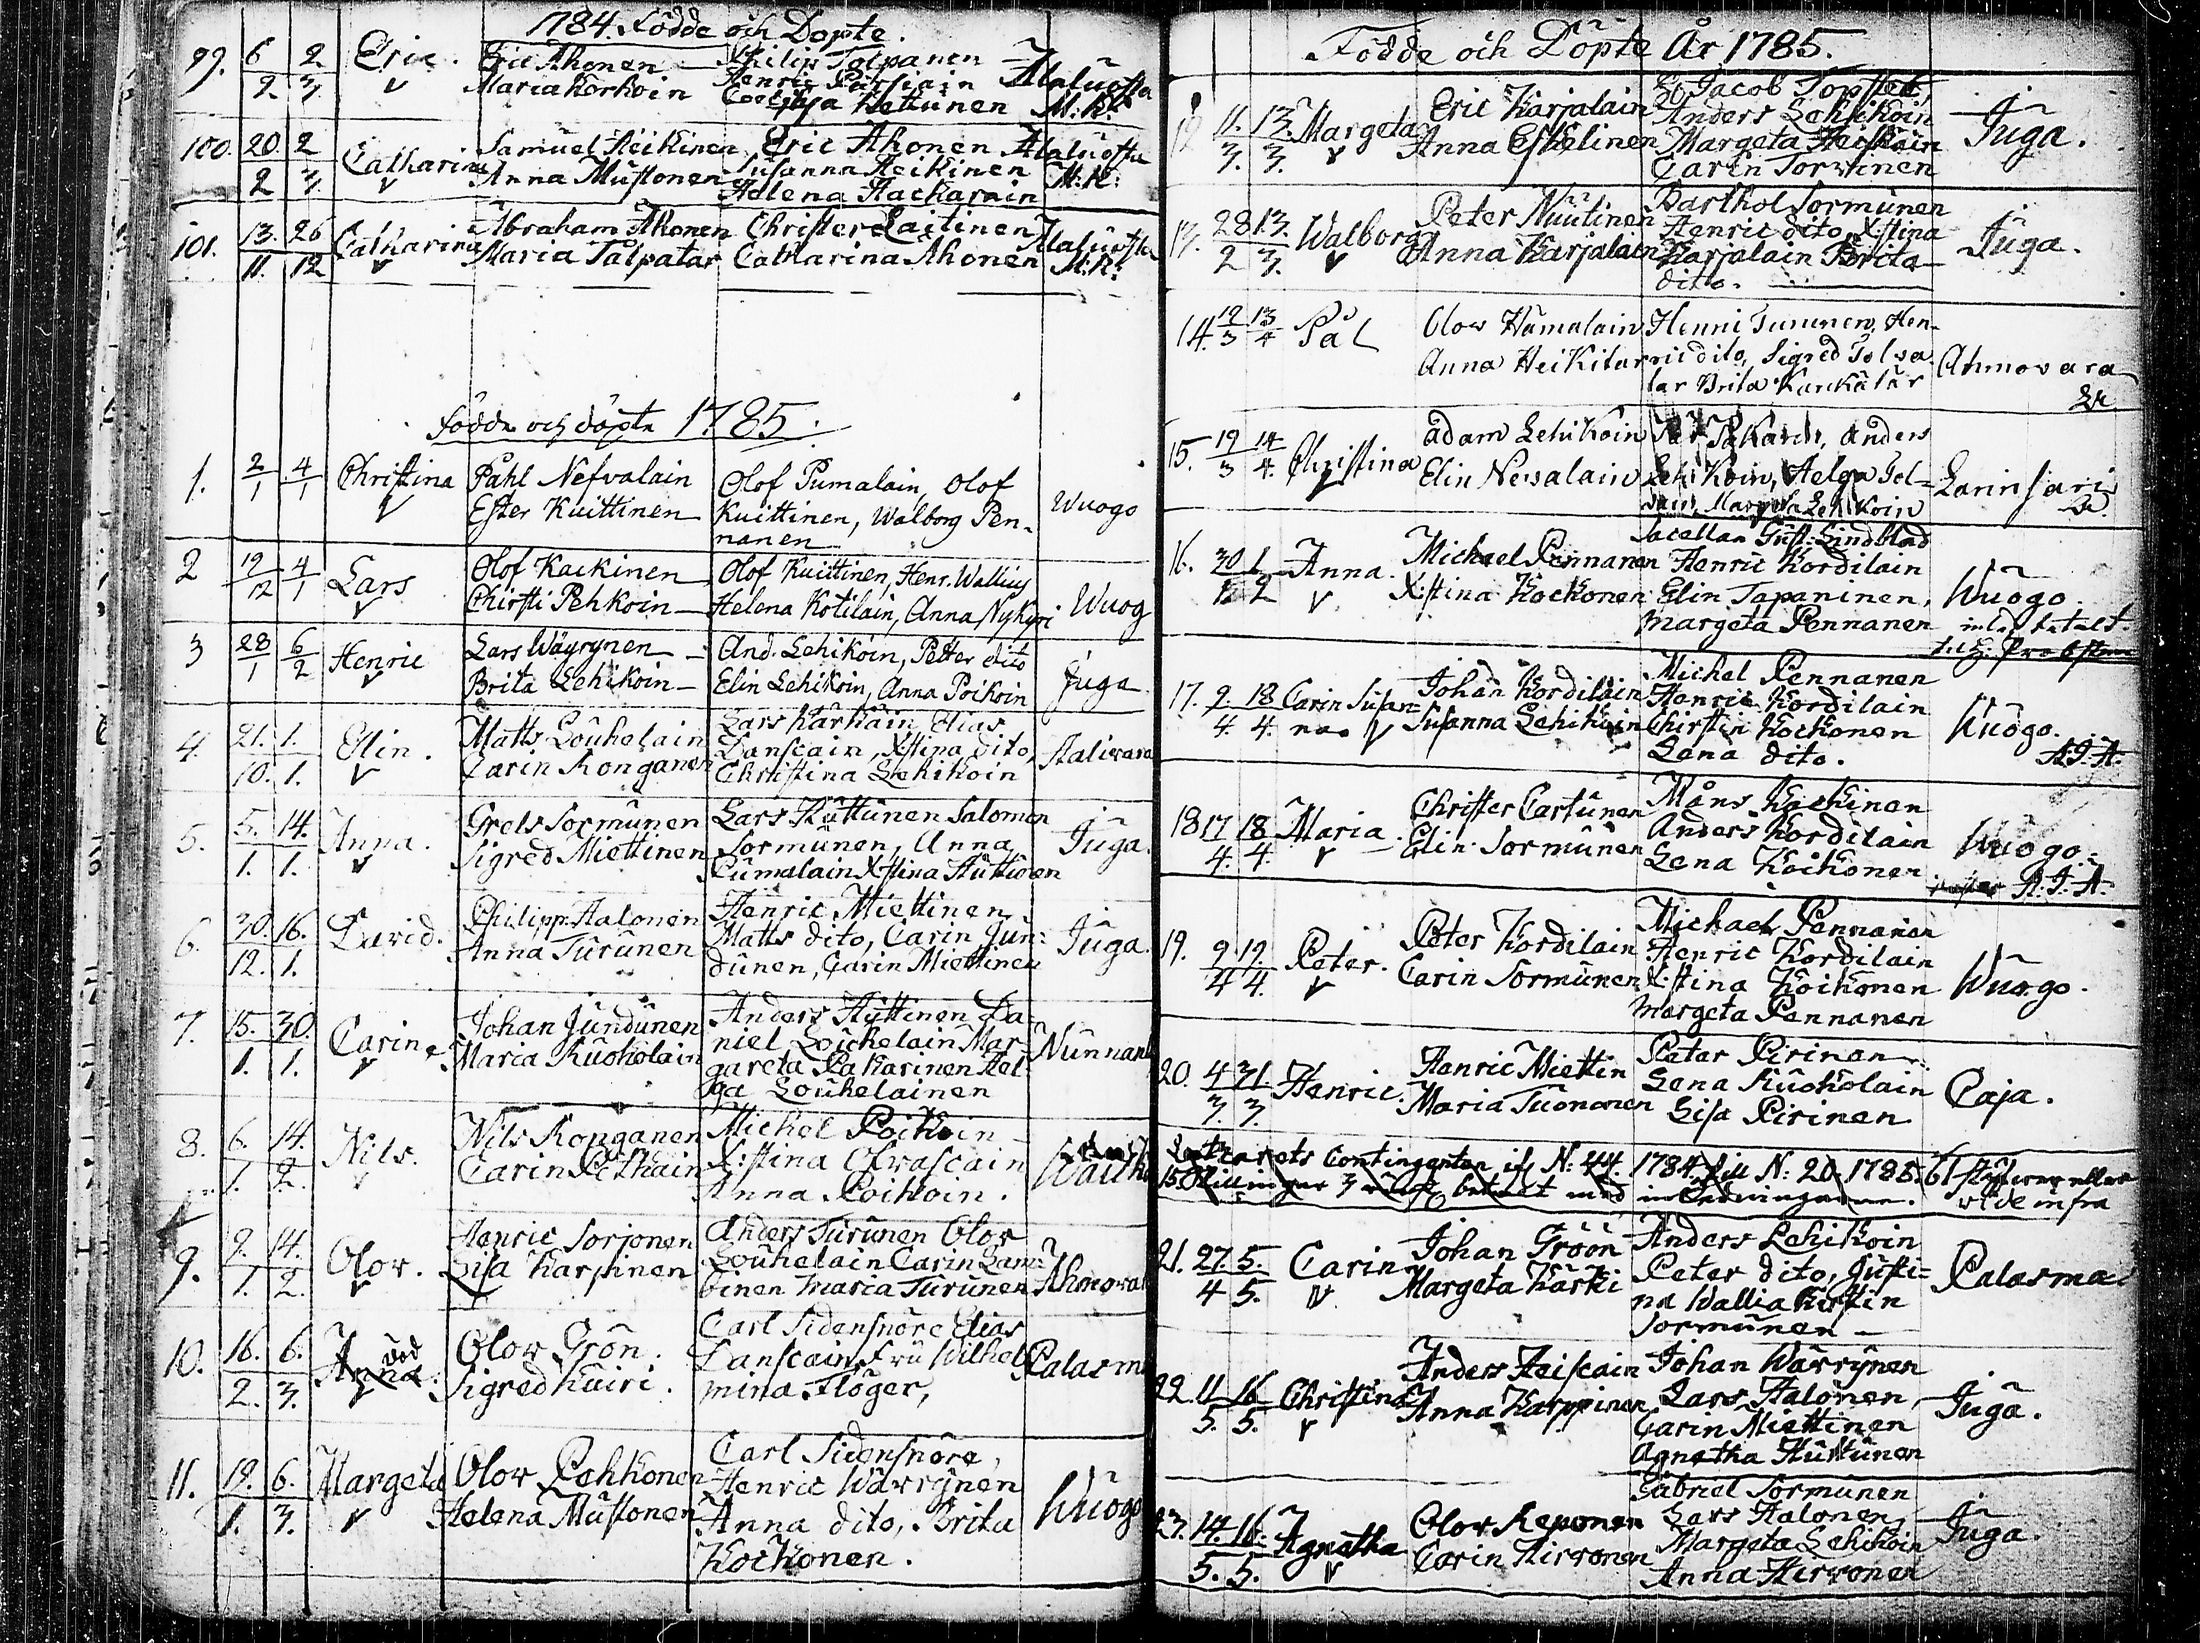 1784. Födde och Döpte.
99. 6/2 2/3 Eric. Eric Ahonen Philip Tolpanen
Maria Korhoin Henric Pursiain Alaluosta
Hettunen M:K:
100. 20/2 2/3 Catharina Samuel Heikinen Eric Ahonen Alaluosta
Anna Mustonen Susanna Heikinen M:K:
Helena Hackarain
101. 13/11 26/12 Catharina Abraham Ahonen Christer Laitinen Alaluosta
Maria Talpatar Catharina Ahonen M:K:
Födde och döpte 1785.
1. 2/1 4/1 Christina Påhl Nefvalain Olof Pumalain, Olof
Ester Kuittinen Kuittinen, Walborg Pen- Wuogo
nanen
2 19/12 4/1 Lars Olof Kackinen Olof Kuittinen, Henr. Wallius
Chirsti Pehkoin Helena Kotilain, Anna Nykyri Wuog
3 28/1 6/2 Henric Lars Wäyrynen And. Lehikoin, Petter dito
Brita Lehikoin Elin Lehikoin, Anna Poikoin Juga
4. 21./10. 1./1. Elin. Matts Louhelain Lars Kärkäin Elias
Carin Ronganen Danscain, Xstina dito, Haliwara
Christina Lehikoin
5. 5./1. 14./1. Anna. Grels Sormunen Lars Huttunen Salomon
Sigred Miettinen Sormunen, Anna Juga.
Pumalain Xstina Huttunen
6. 30./12. 16./1. David. Philipp Halonen Henric Miettinen
Anna Turunen Matts dito, Carin Jun- Juga.
dunen, Carin Miettinen
7. 15./1. 30./1. Carin. Johan Jundunen Anders Hyttinen Da-
Maria Ruoholain niel Louhelain Mar- Nunnanl
gareta Pakarinen Hel-
ga Louhelainen
8. 6./1. 14./2. Nils. Nils Ronganen Michel Poikoin
Carin Xstina Olvascain
Anna Poikoin.
9. 9./1. 14./2. Olov. Henric Sorjonen Anders Turunen Olov
Lisa Karppinen Louhelain Carin Lam-
binen Maria Turunen Ahmovar
10. 16./2. 6./3. Anna. död Olov Grön. Carl Sidensnöre Elias
Sigred Kuiri. Danscain, Fru Wilhel- Palasma
mina Flöger,
11. 19./1. 6./3. Margeta Olov Pehkonen Carl Sidensnöre,
Helena Mustonen Henric Wärrynen Wuogo
Anna dito, Brita
Kockonen.
Födde och Döpte År 1785.
12 11./3. 13./3. Margeta Eric Karjalain Jacob
Anna Eskelinen Anders Lehikoin Juga.
Margeta Heiskain
Carin Torwinen
13. 28/2 13./3. Walborg Peter Nuutinen Barthol Sormunen
Anna Karjalain Henric dito, Xstina Juga.
Karjalain Brita
dito.
14. 12/3 13/4 Pål Olov Hämalain Henric Turunen, Hen-
Anna Heikitar ric dito, Sigred Tolva Ahmovara
tar Brita Kurkätär
15. 19/3 14/4 Christina Adam Lehikoin Anders
Elin Newalain Lehikoin, Helga Tol- Larinsari
vain, Margeta Lehikoin
16. 30/12 1/2 Anna. Michael Pennanen Sacellan Gust: Lindblad
Xstina Kockonen Henric Kordilain
Elin Tapaninen, Wuogo.
Margeta Pennanen
17. 9./4. 18/4. Carin Susan- Johan Kordilain Michel Pennanen
na Susanna Lehikoin Henric Kordilain
Chirstin Kockonen Wuogo.
Lena dito. A.J.A.
18 17/4. 18/4. Maria Christer Cartunen Måns Kackinen
Elin Sormunen Anders Kordilain Wuogo.
Lena Kockonen A.J.A.
19. 9/4 19./4. Peter. Peter Kordilain Michael Pennanen
Carin Sormunen Henric Kordilain
Xstina Kockonen Wuogo.
Margeta Pennanen
20. 4/3. 31/3. Henric. Henric Miettin Peter Pirinen
Maria Tuononen Lena Ruoholain Paja.
Lisa Pirinen
Contingenten if N: 44. 1784 till N: 20. 1785.
vide infra
21. 27./4 5./5. Carin Johan Gröön Anders Lehikoin
Margeta Kärki Peter dito, Justi- Palasma
na Wallia Kirstin
Sormunen
22. 11/5. 16/5. Christina Anders Heiscain Johan Wärrynen
Anna Karppinen Lars Halonen, Juga.
Carin Miettinen
Agnetha Huttunen
23. 14./5. 16./5. Agnetha Olov Reponen Gabriel Sormunen
Carin Hirvonen Lars Halonen Juga.
Margeta Lehikoin
Anna Hirvonen